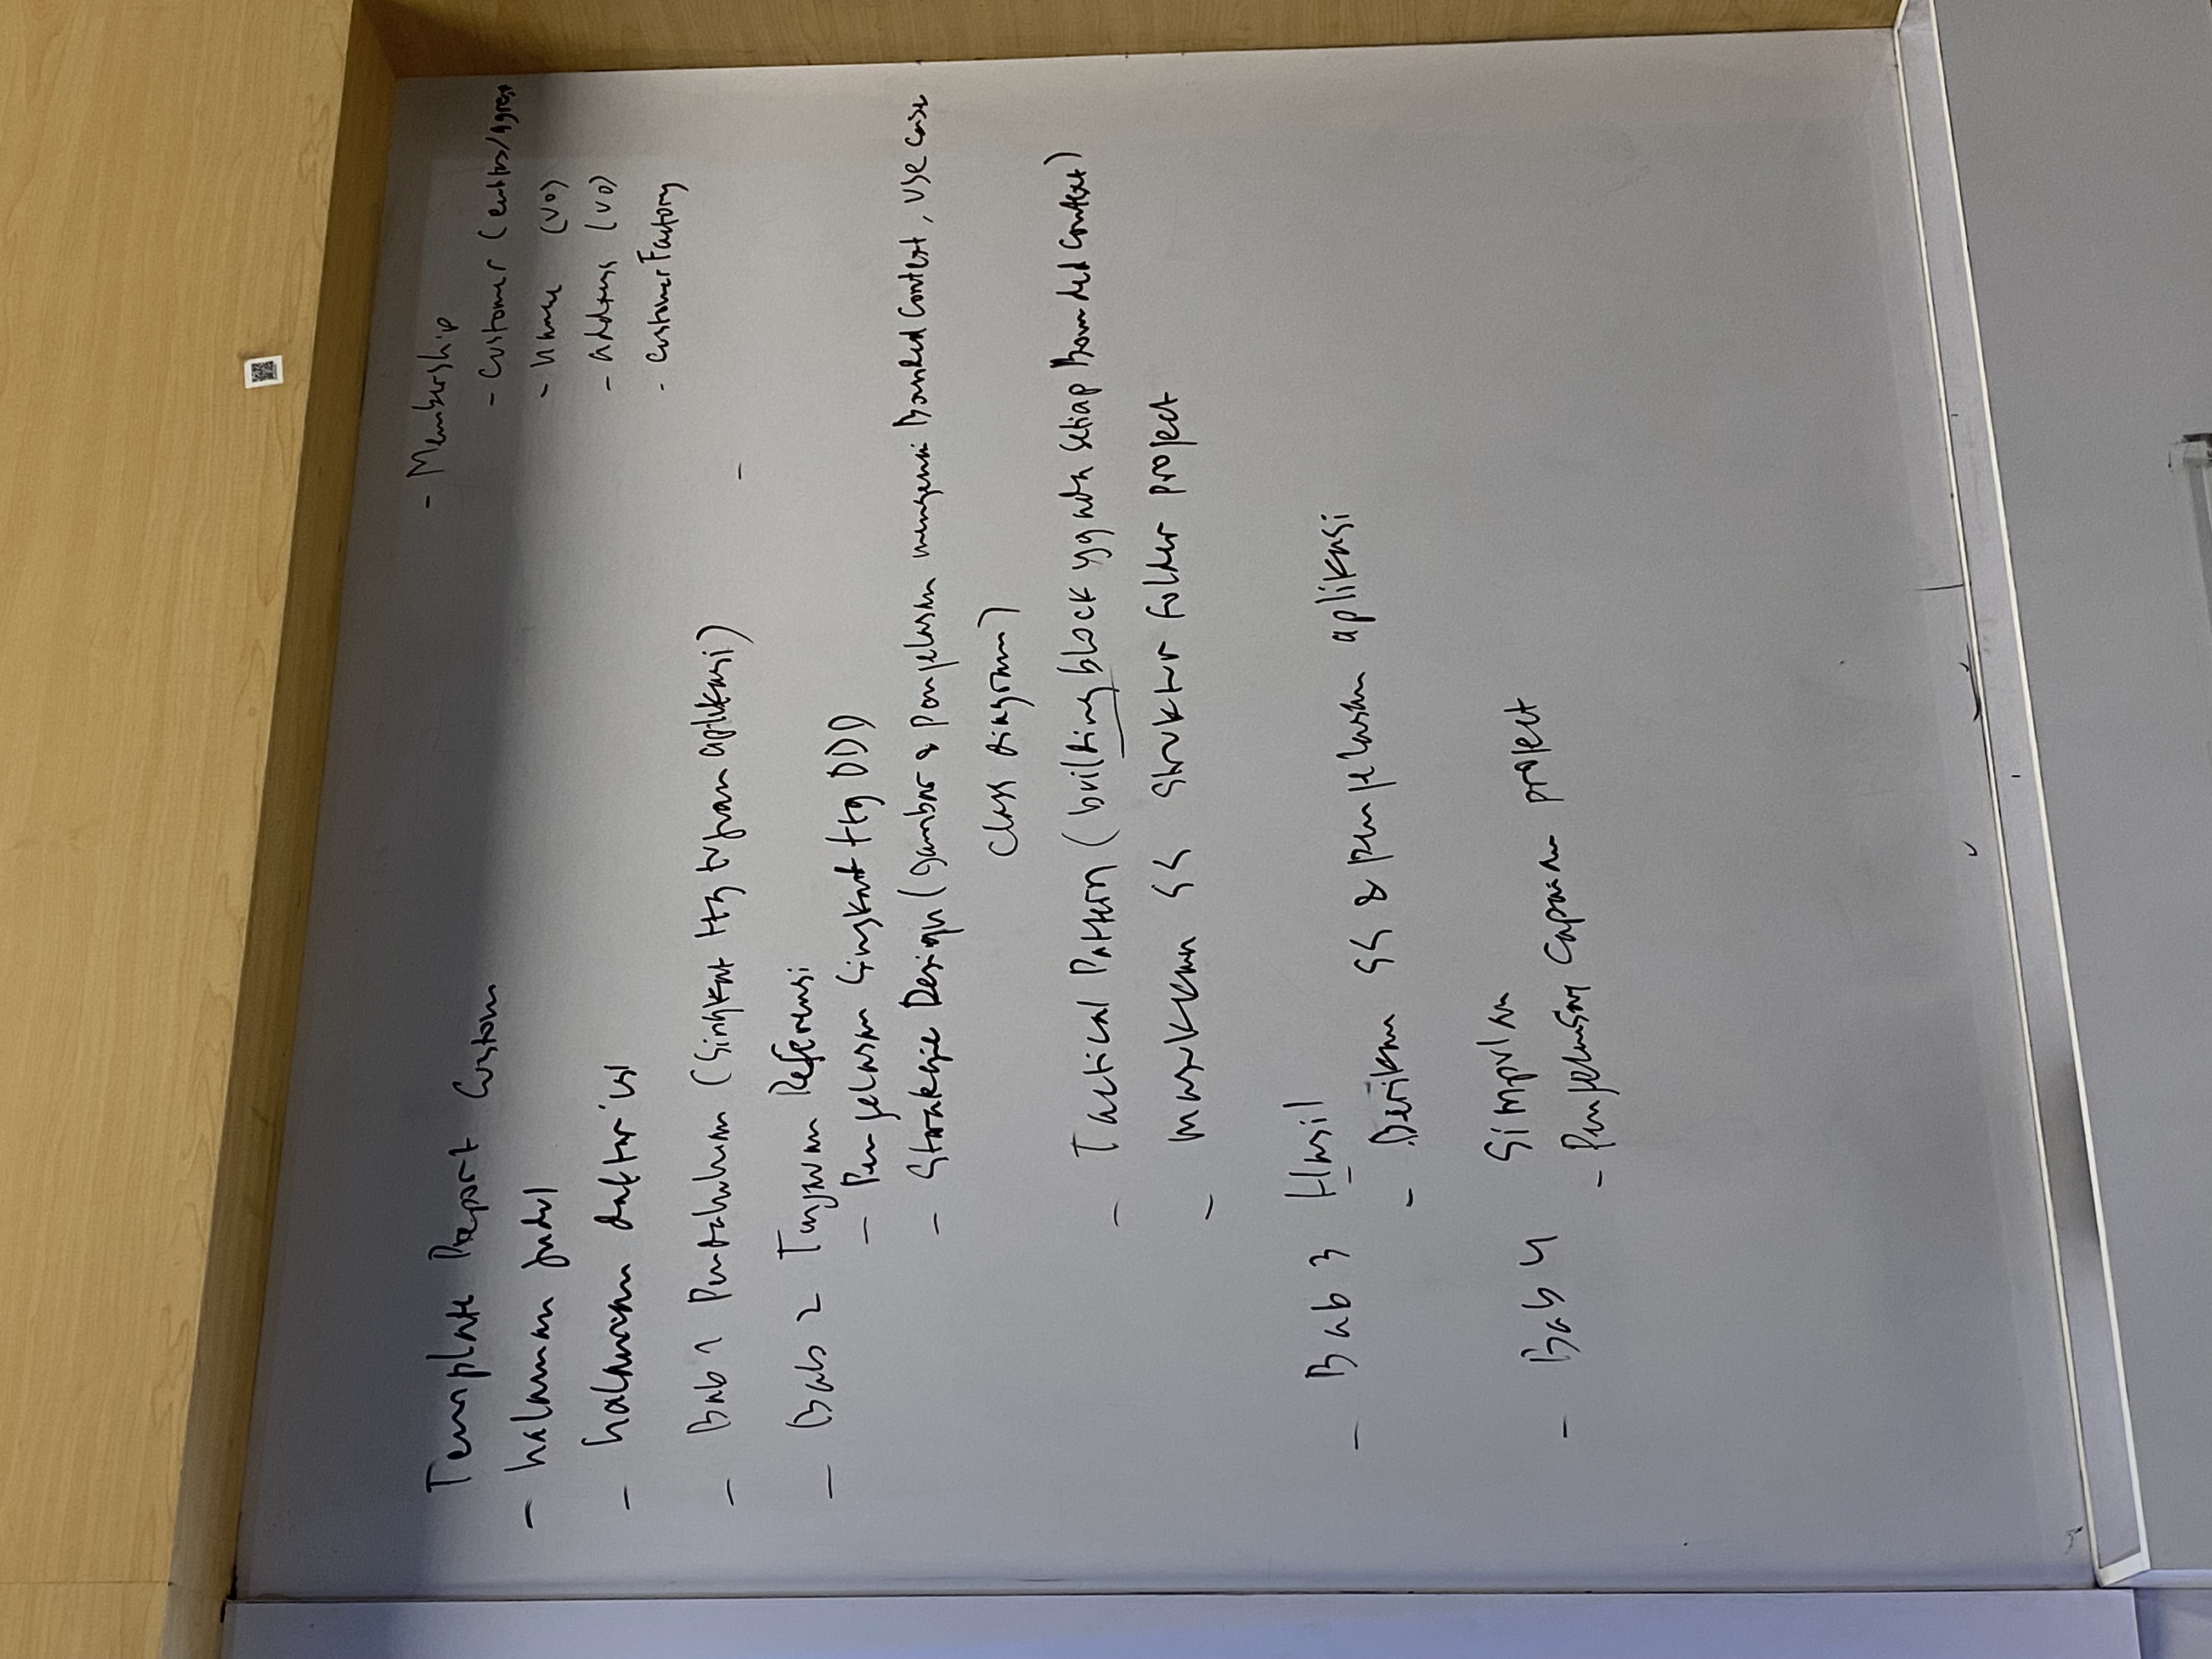 Template Report Custom
- halaman judul
- halaman daftar isi
- Bab 1 Pendahuluan (Singkat ttg tujuan aplikasi)
- Bab 2 Tinjauan Referensi
- Penjelasan Singkat ttg DDD
- Strategic Design (gambar & penjelasan mengenai Bounded Context, use case
Class diagram)
- Tactical Pattern (building block yg ada setiap Bounded Context)
- masukkan SS struktur folder project
- Bab 3 Hasil
- Berikan SS & penjelasan aplikasi
- Bab 4 Simpulan
- Penjelasan Capaian project
- Membership
- Customer (
- Name (VO)
- address (VO)
- Customer Factory
-